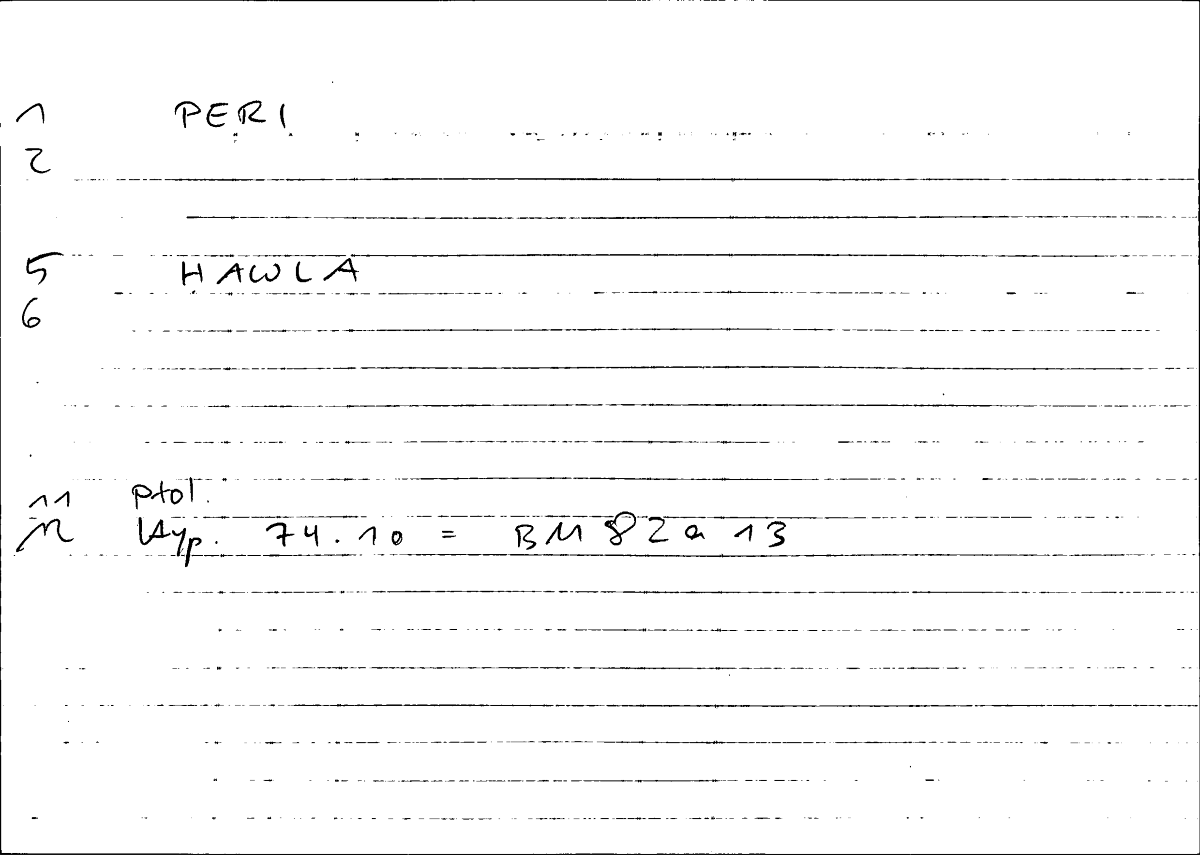 1 PERI
2
5 HAWLA
6
11 ptol.
12 Hyp. 74.10 = BM 82 a 13